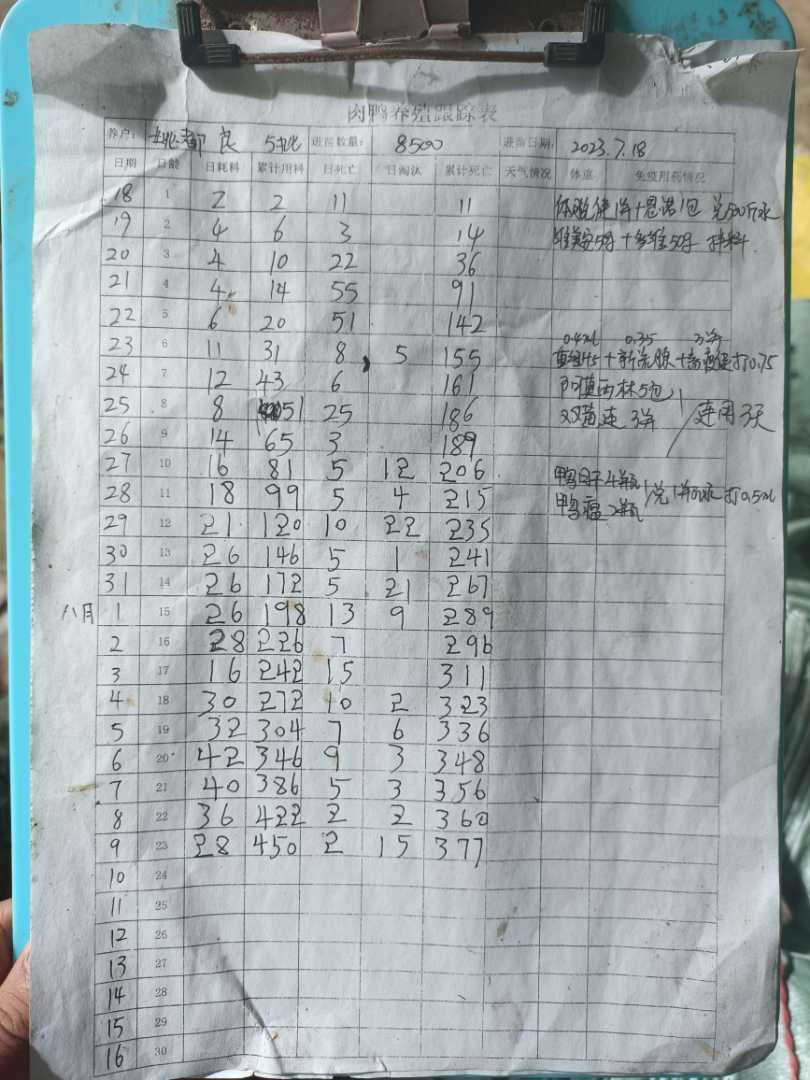 肉鸭养殖跟踪表
养户: 姚都良 5批 进苗数量: 8500 进苗日期: 2023.7.18
日期 日龄 日耗料 累计用料 日死亡 日淘汰 累计死亡 天气情况 体重 免疫用药情况
18 1 2 2 11 11 1包 兑500斤水
19 2 4 6 3 14 50 + 多维50 拌料
20 3 4 10 22 36
21 4 4 14 55 91
22 5 6 20 51 142
0.35
23 6 11 31 8 5 155 打0.75
24 7 12 43 6 161 阿莫西林5包
25 8 8 51 25 186 双黄连 连用3天
26 9 14 65 3 189
27 10 16 81 5 12 206 4瓶
28 11 18 99 5 4 215 2瓶 打0.5ml
29 12 21 120 10 22 235
30 13 26 146 5 1 241
31 14 26 172 5 21 267
八月 1 15 26 198 13 9 289
2 16 28 226 7 296
3 17 16 242 15 311
4 18 30 272 10 2 323
5 19 32 304 7 6 336
6 20 42 346 9 3 348
7 21 40 386 5 3 356
8 22 36 422 2 2 360
9 23 28 450 2 15 377
10 24
11 25
12 26
13 27
14 28
15 29
16 30